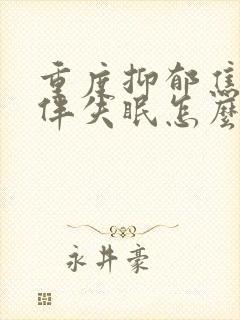 重度抑郁焦
伴失眠怎麼
永井豪